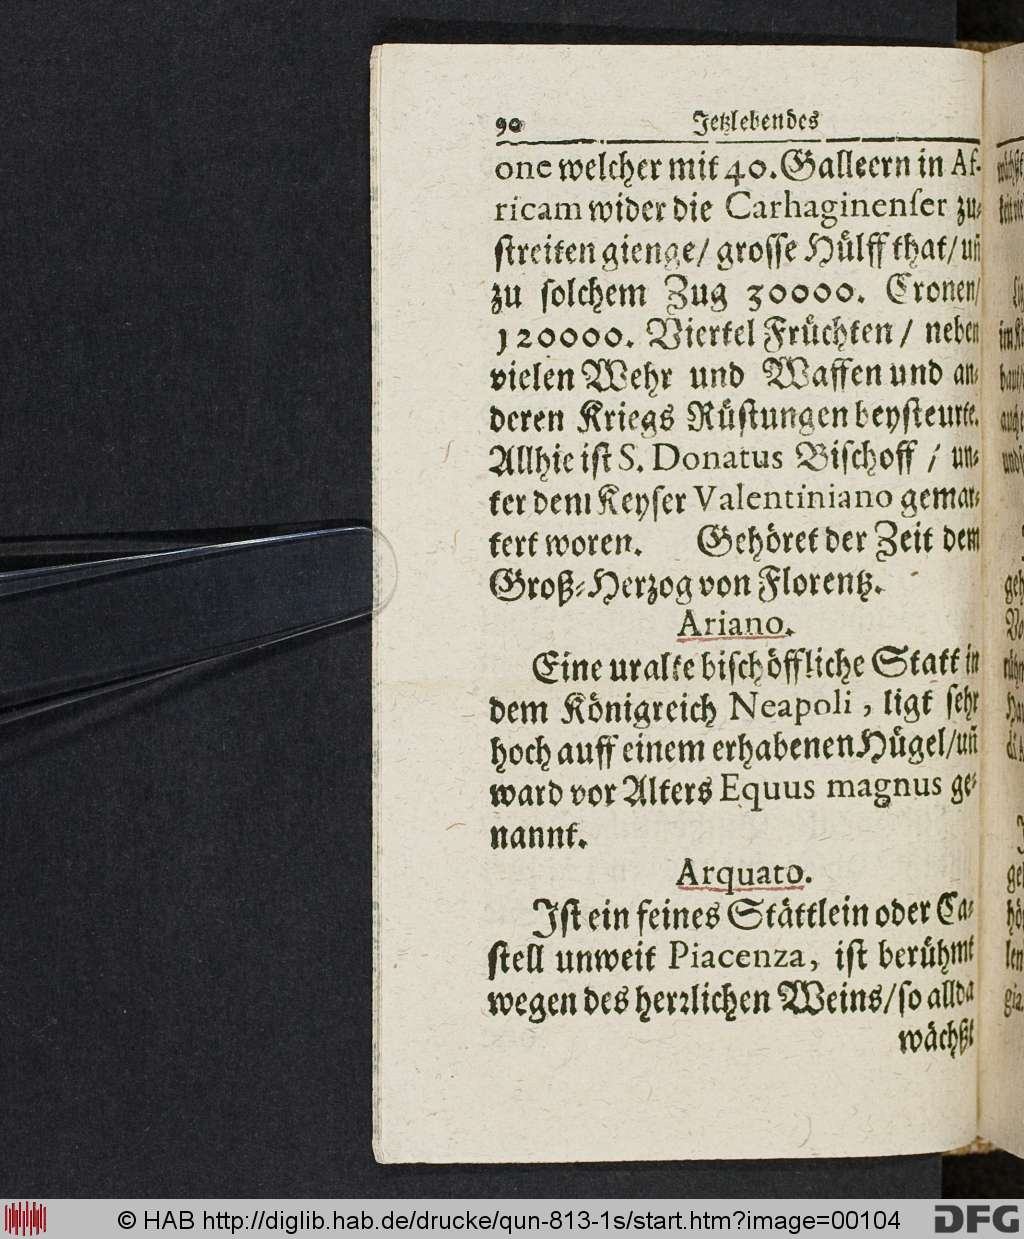 90 Jetzlebendes
one welcher mit 40. Galleern in Af-
ricam wider die Carhaginenser zu-
streiten gienge/ grosse Hülff that/ uñ
zu solchem Zug 30000. Cronen/
120000. Viertel Früchten / neben
vielen Wehr und Waffen und an-
deren Kriegs Rüstungen beysteurte.
Allhie ist S. Donatus Bischoff / un-
ter dem Keyser Valentiniano gemar-
tert woren. Gehöret der Zeit dem
Groß-Herzog von Florentz.
Ariano.
Eine uralte bischöffliche Statt in
dem Königreich Neapoli, ligt sehr
hoch auff einem erhabenen Hügel/ uñ
ward vor Alters Equus magnus ge-
nannt.
Arquato.
Ist ein feines Stättlein oder Ca-
stell unweit Piacenza, ist berühmt
wegen des herrlichen Weins/ so allda
wächßt
© HAB http://diglib.hab.de/drucke/qun-813-1s/start.htm?image=00104
DFG